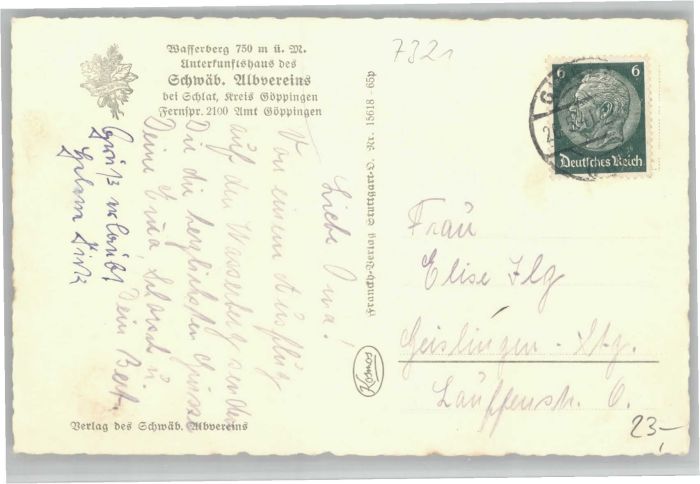 Wasserberg 750 m ü. M.
Unterkunftshaus des
Schwäb. Albvereins
bei Schlat, Kreis Göppingen
Fernspr. 2100 Amt Göppingen
7321
6 6
Deutsches Reich
Liebe Oma!
Von einem Ausflug
auf den Wasserberg senden
Dir die herzlichsten Grüsse
Deine Erna, u.
Dein Bert.
Gruß
Franckh-Verlag Stuttgart-O. Nr. 15618 - 65p
Kosmos
Frau
Elise Ilg
Geislingen - Stg.
Verlag des Schwäb. Albvereins
23,-